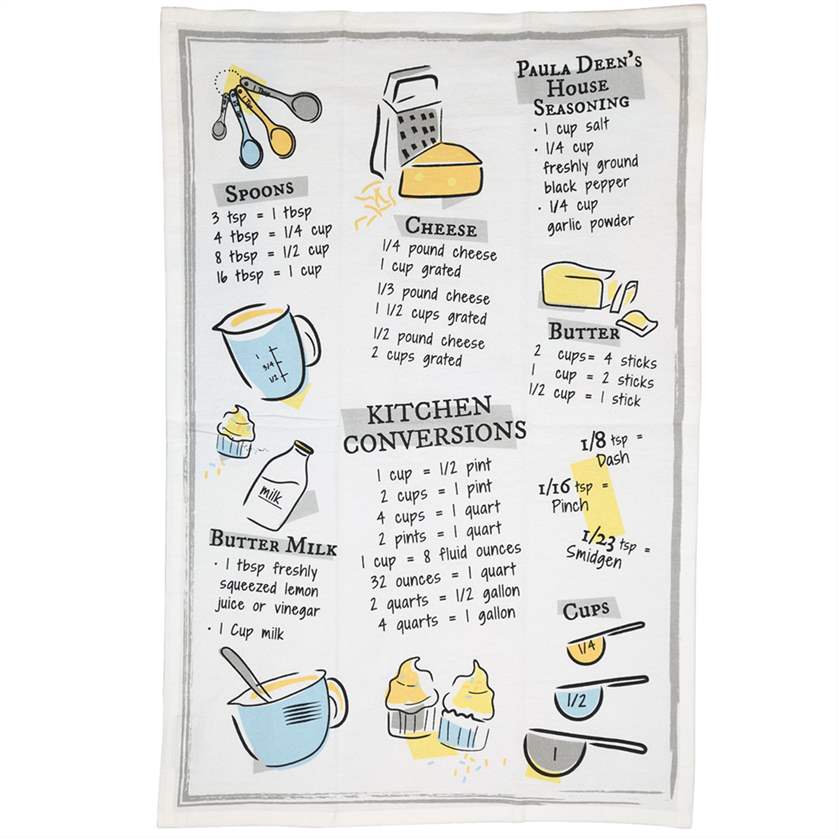 1 Tbsp
1 Tsp
SPOONS
3 tsp = 1 tbsp
4 tbsp = 1/4 cup
8 tbsp = 1/2 cup
16 tbsp = 1 cup
1
3/4
1/2
milk
BUTTER MILK
· 1 tbsp freshly
squeezed lemon
juice or vinegar
· 1 Cup milk
CHEESE
1/4 pound cheese
1 cup grated
1/3 pound cheese
1 1/2 cups grated
1/2 pound cheese
2 cups grated
KITCHEN
CONVERSIONS
1 cup = 1/2 pint
2 cups = 1 pint
4 cups = 1 quart
2 pints = 1 quart
1 cup = 8 fluid ounces
32 ounces = 1 quart
2 quarts = 1/2 gallon
4 quarts = 1 gallon
PAULA DEEN'S
HOUSE
SEASONING
· 1 cup salt
· 1/4 cup
freshly ground
black pepper
· 1/4 cup
garlic powder
BUTTER
2 cups= 4 sticks
1 cup = 2 sticks
1/2 cup = 1 stick
1/8 tsp =
Dash
1/16 tsp =
Pinch
1/23 tsp =
Smidgen
CUPS
1/4
1/2
1